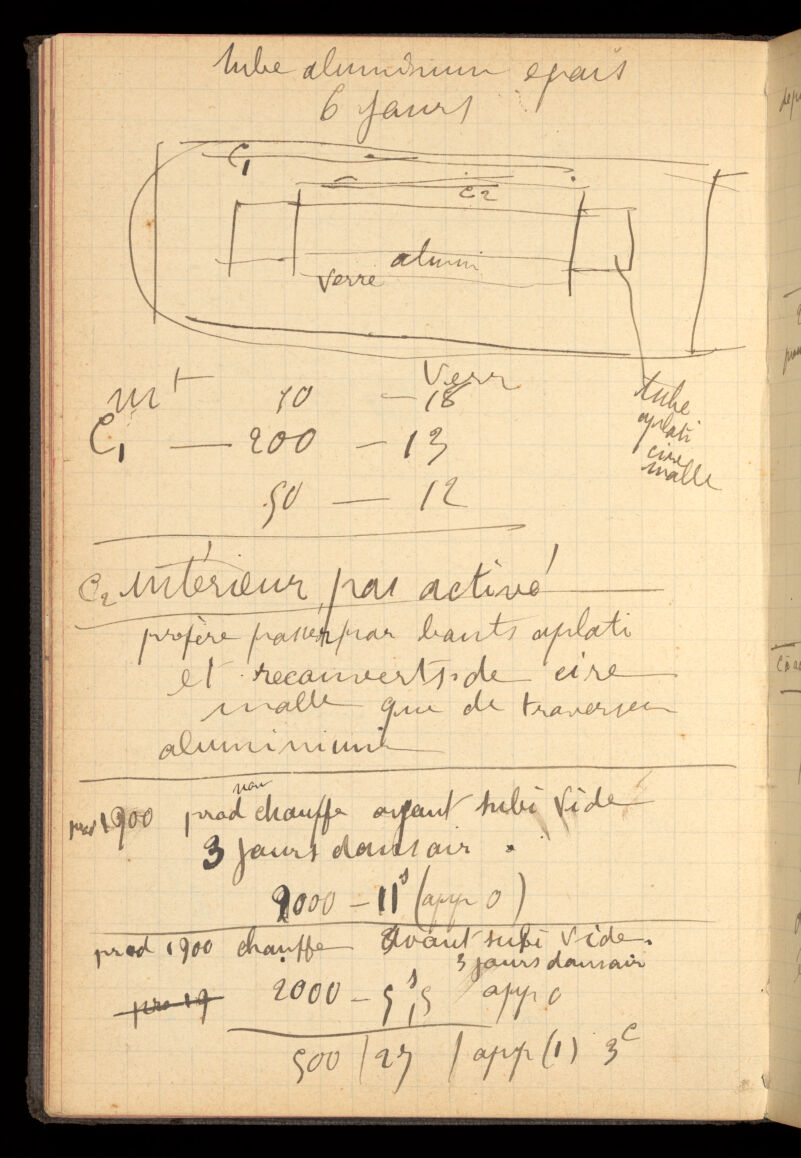 tube aluminium epais
6 jours
C1
C2
alumin
Verre
Verr
10 — 18
C1 — 200 — 13
50 — 12
tube
aplati
cire
malle
C2 intérieur pas activé
préfère passer par bouts aplati
et recouverts de cire
malle que de traverser
aluminium
prod 1900 prod non chauffe ayant subi vide
3 jours dans air.
2000 — 11s (app 0)
prod 1900 chauffe ayant subi vide.
3 jours dans air
2000 — 5s,5 app 0
500 | 27 | app (1) 3c